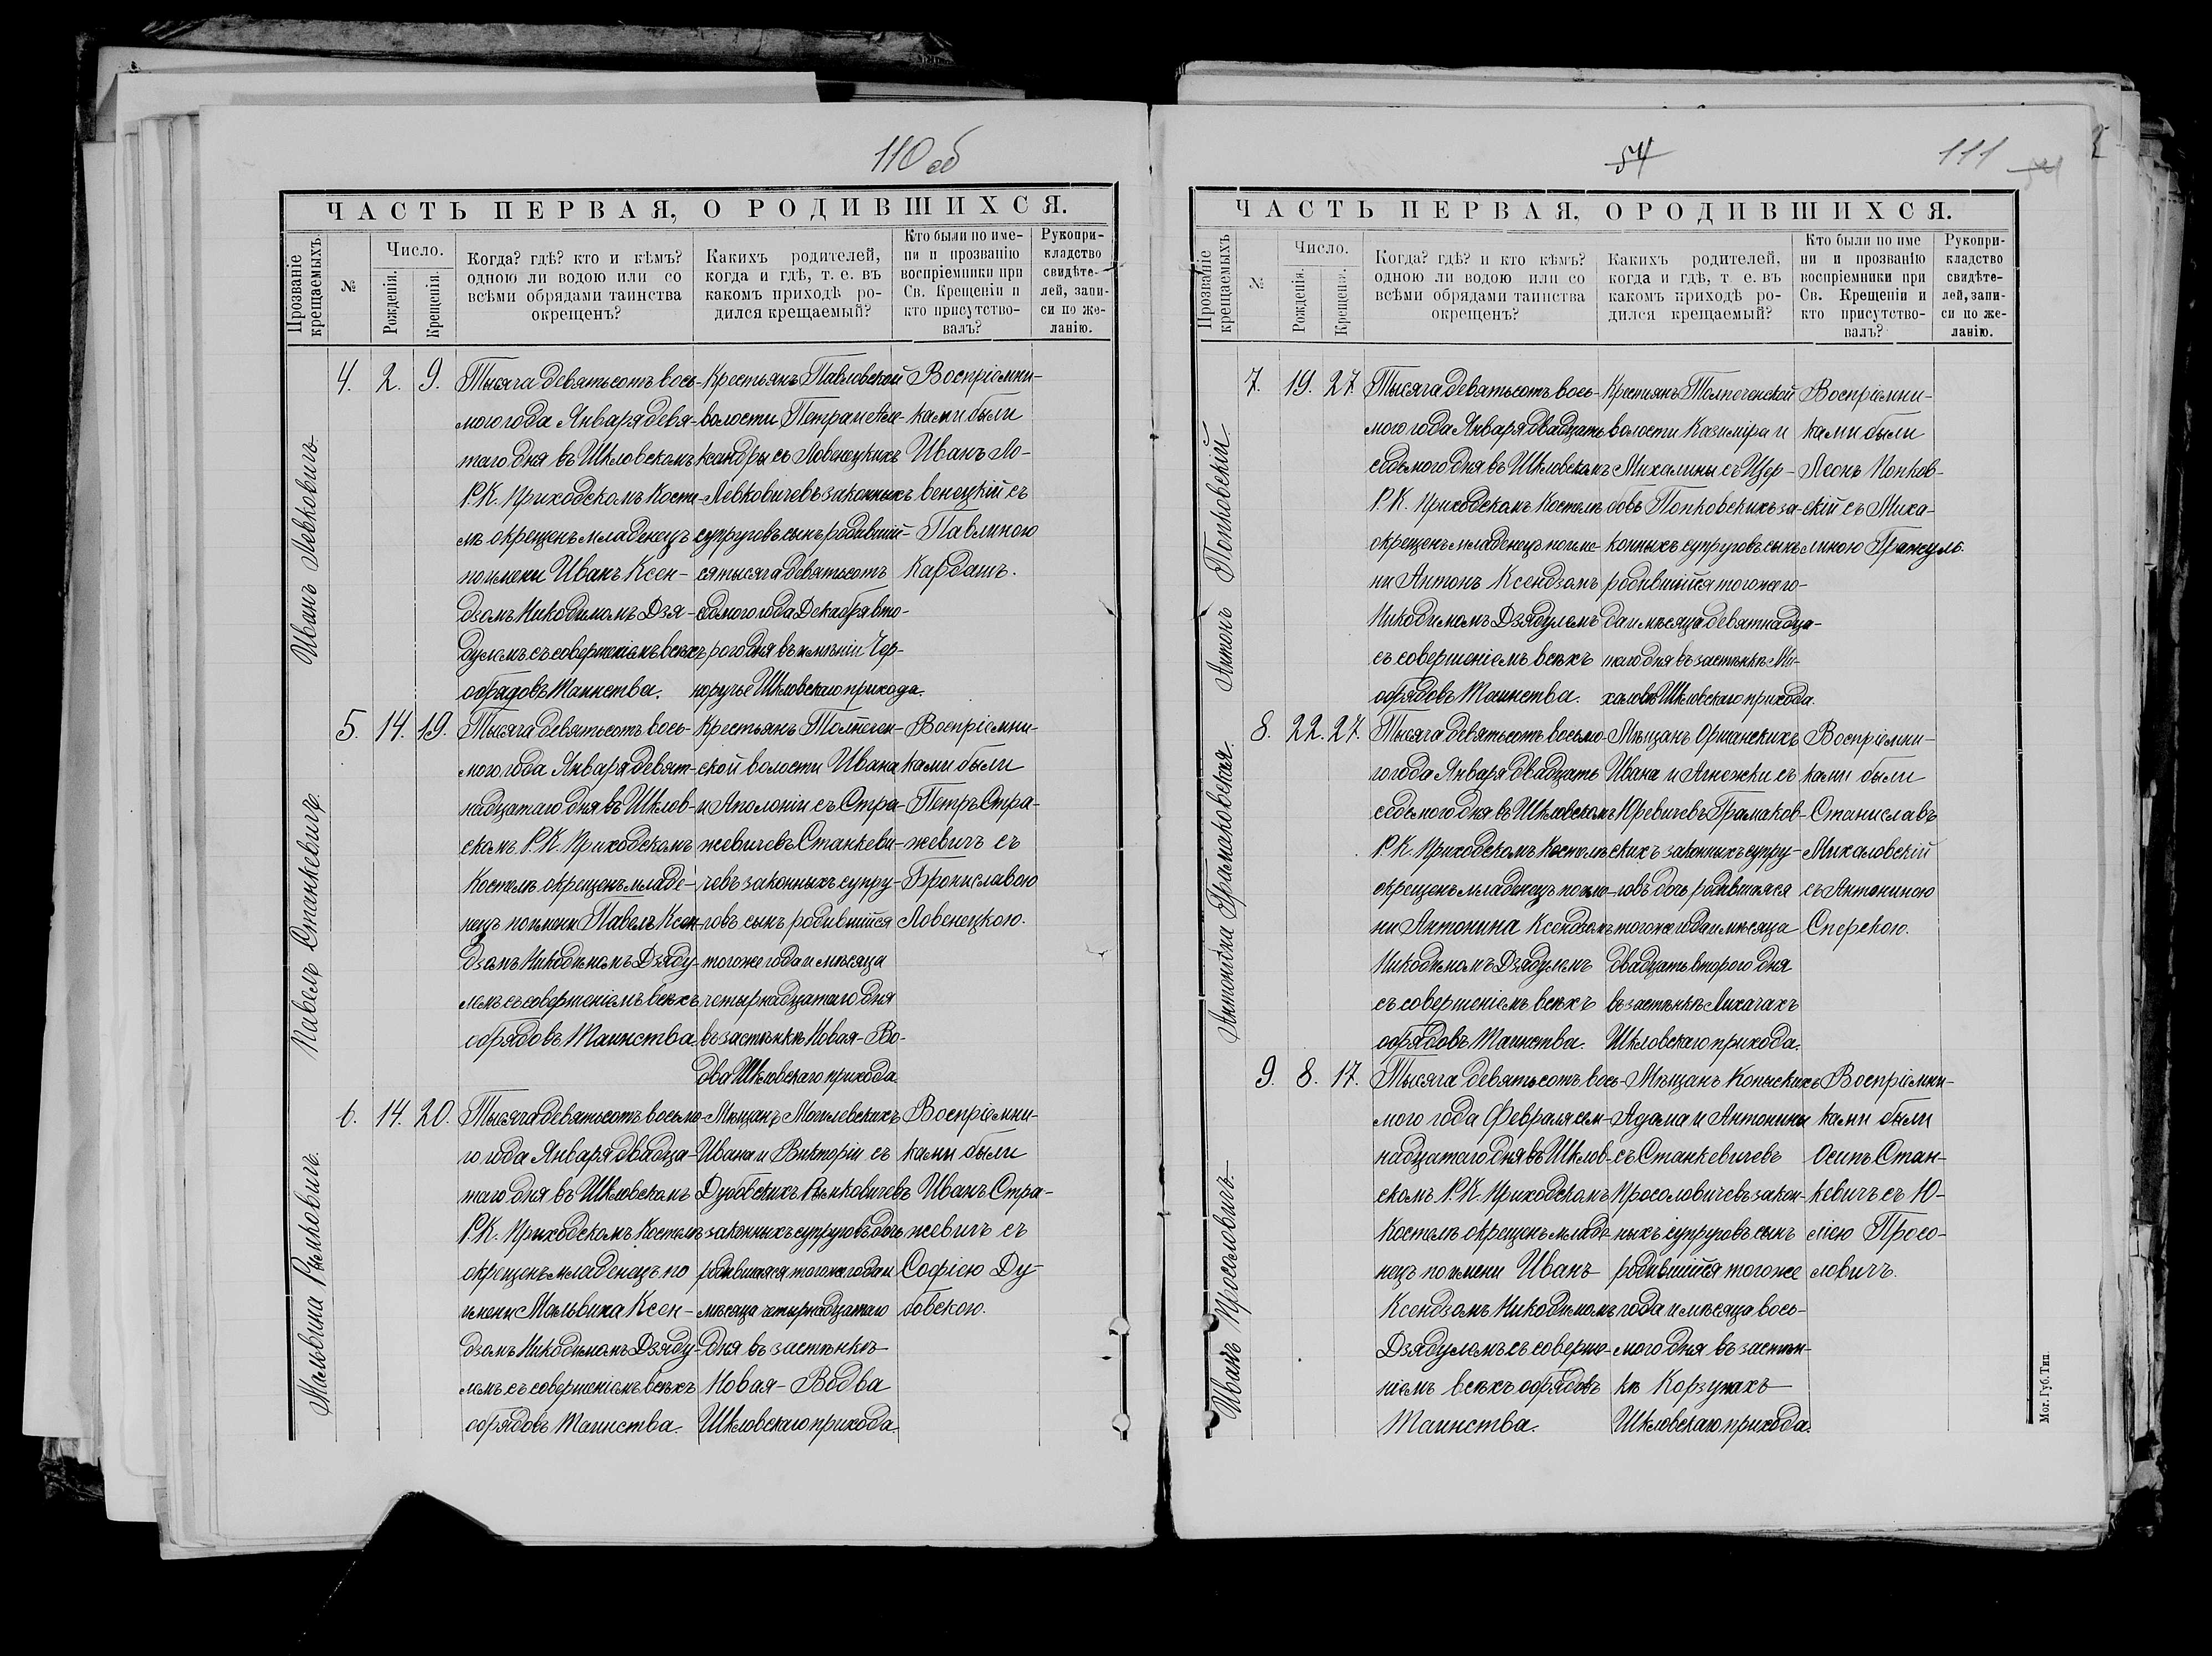 110 об
ЧАСТЬ ПЕРВАЯ, О РОДИВШИХСЯ.
Прозваніе крещаемыхъ.
№
Число.
Рожденія.
Крещенія.
Когда? гдѣ? кто и кѣмъ?
одною ли водою или со
всѣми обрядами таинства
окрещенъ?
Какихъ родителей,
когда и гдѣ, т. е. въ
какомъ приходѣ ро-
дился крещаемый?
Кто были по име-
ни и прозванію
воспріемники при
Св. Крещеніи и
кто присутство-
валъ?
Рукопри-
кладство
свидѣте-
лей, запи-
си по же-
ланію.
Иванъ Левковичъ
4. 2. 9.
Тысяча девятьсотъ вось-
мого года Января девя-
таго дня въ Шкловскомъ
Р.К. Приходскомъ Косте-
лѣ окрещенъ младенецъ
по имени Иванъ Ксен-
дзомъ Никодимомъ Дзя-
дулемъ съ совершеніемъ всѣхъ
обрядовъ Таинства.
Крестьянъ Павловской
волости Петра и Але-
ксандры съ Ловенецкихъ
Левковичевъ законныхъ
супруговъ сынъ родивший-
ся тысяча девятьсотъ
седмого года Декабря вто-
рого дня въ имѣніи Чер-
норучье Шкловскаго прихода.
Воспріемни-
ками были
Иванъ Ло-
венецкій съ
Павлиною
Кардашъ.
Павелъ Станкевичъ.
5. 14. 19.
Тысяча девятьсотъ вось-
мого года Января девят-
надцатаго дня въ Шклов-
скомъ Р.К. Приходскомъ
Костелѣ окрещенъ младе-
нецъ по имени Павелъ Ксен-
дзомъ Никодимомъ Дзяду-
лемъ съ совершеніемъ всѣхъ
обрядовъ Таинства.
Крестьянъ Толпечен-
ской волости Ивана
и Аполоніи съ Стра-
жевичевъ Станкеви-
чевъ законныхъ супру-
говъ сынъ родившійся
того же года и мѣсяца
четырнадцатаго дня
въ застѣнкѣ Новая-Во-
два Шкловскаго прихода.
Воспріемни-
ками были
Петръ Стра-
жевичъ съ
Брониславою
Ловенецкою.
Мальвина Рымковичъ.
6. 14. 20.
Тысяча девятьсотъ восьмо-
го года Января двадца-
таго дня въ Шкловскомъ
Р.К. Приходскомъ Костелѣ
окрещенъ младенецъ по
имени Мальвина Ксен-
дзомъ Никодимомъ Дзяду-
лемъ съ совершеніемъ всѣхъ
обрядовъ Таинства.
Мѣщанъ Могилевскихъ
Ивана и Викторіи съ
Дубовскихъ Рымковичевъ
законныхъ супруговъ дочь
родившаяся того же года и
мѣсяца четырнадцатаго
дня въ застѣнкѣ
Новая-Водва
Шкловскаго прихода.
Воспріемни-
ками были
Иванъ Стра-
жевичъ съ
Софіею Ду-
бовскою.
54
111
ЧАСТЬ ПЕРВАЯ, О РОДИВШИХСЯ.
Прозваніе крещаемыхъ
№
Число.
Рожденія.
Крещенія.
Когда? гдѣ? и кто кѣмъ?
одною ли водою или со
всѣми обрядами таинства
окрещенъ?
Какихъ родителей,
когда и гдѣ, т. е. въ
какомъ приходѣ ро-
дился крещаемый?
Кто были по име
ни и прозванію
воспріемники при
Св. Крещеніи и
кто присутство-
валъ?
Рукопри-
кладство
свидѣте-
лей, запи-
си по же-
ланію.
Антонъ Попковскій
7. 19. 27.
Тысяча девятьсотъ вось-
мого года Января двадцать
седьмого дня въ Шкловскомъ
Р.К. Приходскомъ Костелѣ
окрещенъ младенецъ по име-
ни Антонъ Ксендзомъ
Никодимомъ Дзядулемъ
съ совершеніемъ всѣхъ
обрядовъ Таинства.
Крестьянъ Толпеченской
волости Казиміра и
Михалины съ Щер-
бовъ Попковскихъ за-
конныхъ супруговъ сынъ
родившійся того же го-
да и мѣсяца девятнадца-
таго дня въ застѣнкѣ Ми-
халовѣ Шкловскаго прихода.
Воспріемни-
ками были
Леонъ Попков-
скій съ Миха-
линою Гражуль.
Антонина Грамаковская.
8. 22. 27.
Тысяча девятьсотъ восьмо-
го года Января двадцать
седьмого дня въ Шкловскомъ
Р.К. Приходскомъ Костелѣ
окрещенъ младенецъ по име-
ни Антонина Ксендзомъ
Никодимомъ Дзядулемъ
съ совершеніемъ всѣхъ
обрядовъ Таинства.
Мѣщанъ Оршанскихъ
Ивана и Агнежки съ
Юревичевъ Грамаков-
скихъ законныхъ супру-
говъ дочь родившаяся
того же года и мѣсяца
двадцать второго дня
въ застѣнкѣ Лихачахъ
Шкловскаго прихода.
Воспріемни-
ками были
Станиславъ
Михаловскій
съ Антониною
Сперскою.
Иванъ Просоловичъ.
9. 8. 17.
Тысяча девятьсотъ вось-
мого года Февраля сем-
надцатаго дня въ Шклов-
скомъ Р.К. Приходскомъ
Костелѣ окрещенъ младе-
нецъ по имени Иванъ
Ксендзомъ Никодимомъ
Дзядулемъ съ соверше-
ніемъ всѣхъ обрядовъ
Таинства.
Мѣщанъ Копысскихъ
Адама и Антонины
съ Станкевичевъ
Просоловичевъ закон-
ныхъ супруговъ сынъ
родившійся того же
года и мѣсяца вось-
мого дня въ застѣн-
кѣ Корзунахъ
Шкловскаго прихода.
Воспріемни-
ками были
Осипъ Стан-
кевичъ съ Ю-
ліею Просо-
ловичъ.
Мог. Губ. Тип.